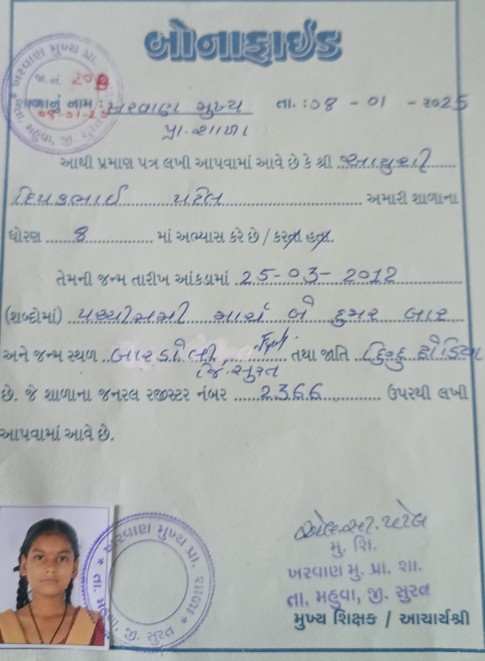 બોનાફાઈડ
ખરવાણ મુખ્ય પ્રા.
જા.નં. 208
08-01-25
તા. મહુવા, જી. સુરત
શાળાનું નામ : ખરવાણ મુખ્ય તા. : 08 - 01 - 2025
પ્રા. શાળા
આથી પ્રમાણ પત્ર લખી આપવામાં આવે છે કે શ્રી આયુશી
દિપકભાઈ પટેલ અમારી શાળાના
ધોરણ 8 માં અભ્યાસ કરે છે / કરતા હતા.
તેમની જન્મ તારીખ આંકડામાં 25-03-2012
(શબ્દોમાં) પચ્ચીસમી માર્ચ બે હજાર બાર
અને જન્મ સ્થળ બારડોલી તથા જાતિ હિન્દુ ઢોડિયા
જિ. સુરત
છે. જે શાળાના જનરલ રજીસ્ટર નંબર 2366 ઉપરથી લખી
આપવામાં આવે છે.
ખરવાણ મુખ્ય પ્રા. શાળા
તા. મહુવા, જી. સુરત
એલ.આર. પટેલ
મુ. શિ.
ખરવાણ મુ. પ્રા. શા.
તા. મહુવા, જી. સુરત
મુખ્ય શિક્ષક / આચાર્યશ્રી